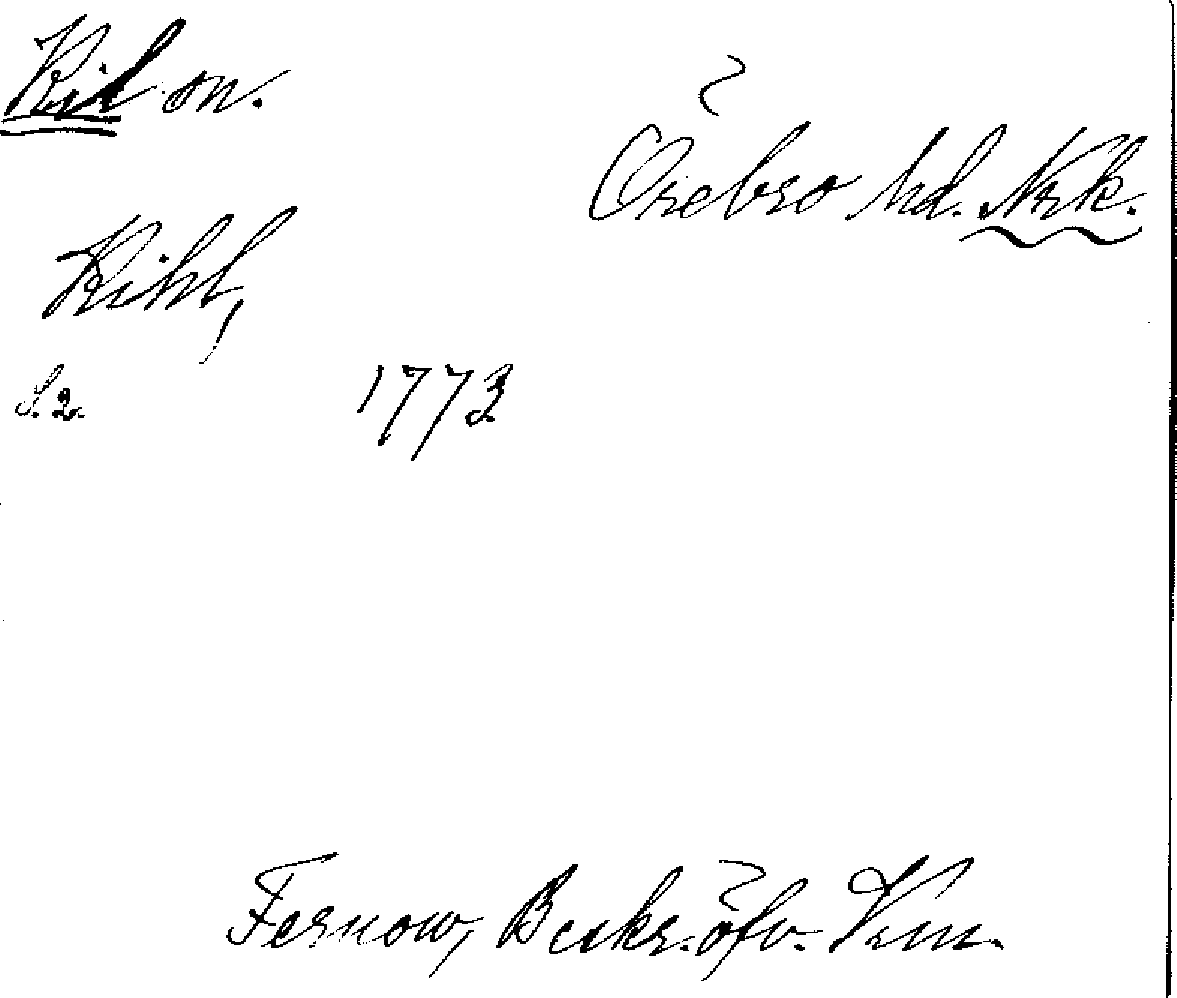 Kil sn.
Örebro hd. Nrk.
Kihl,
S. 2.
1773
Fernow, Beskr. öfv. Vrm.